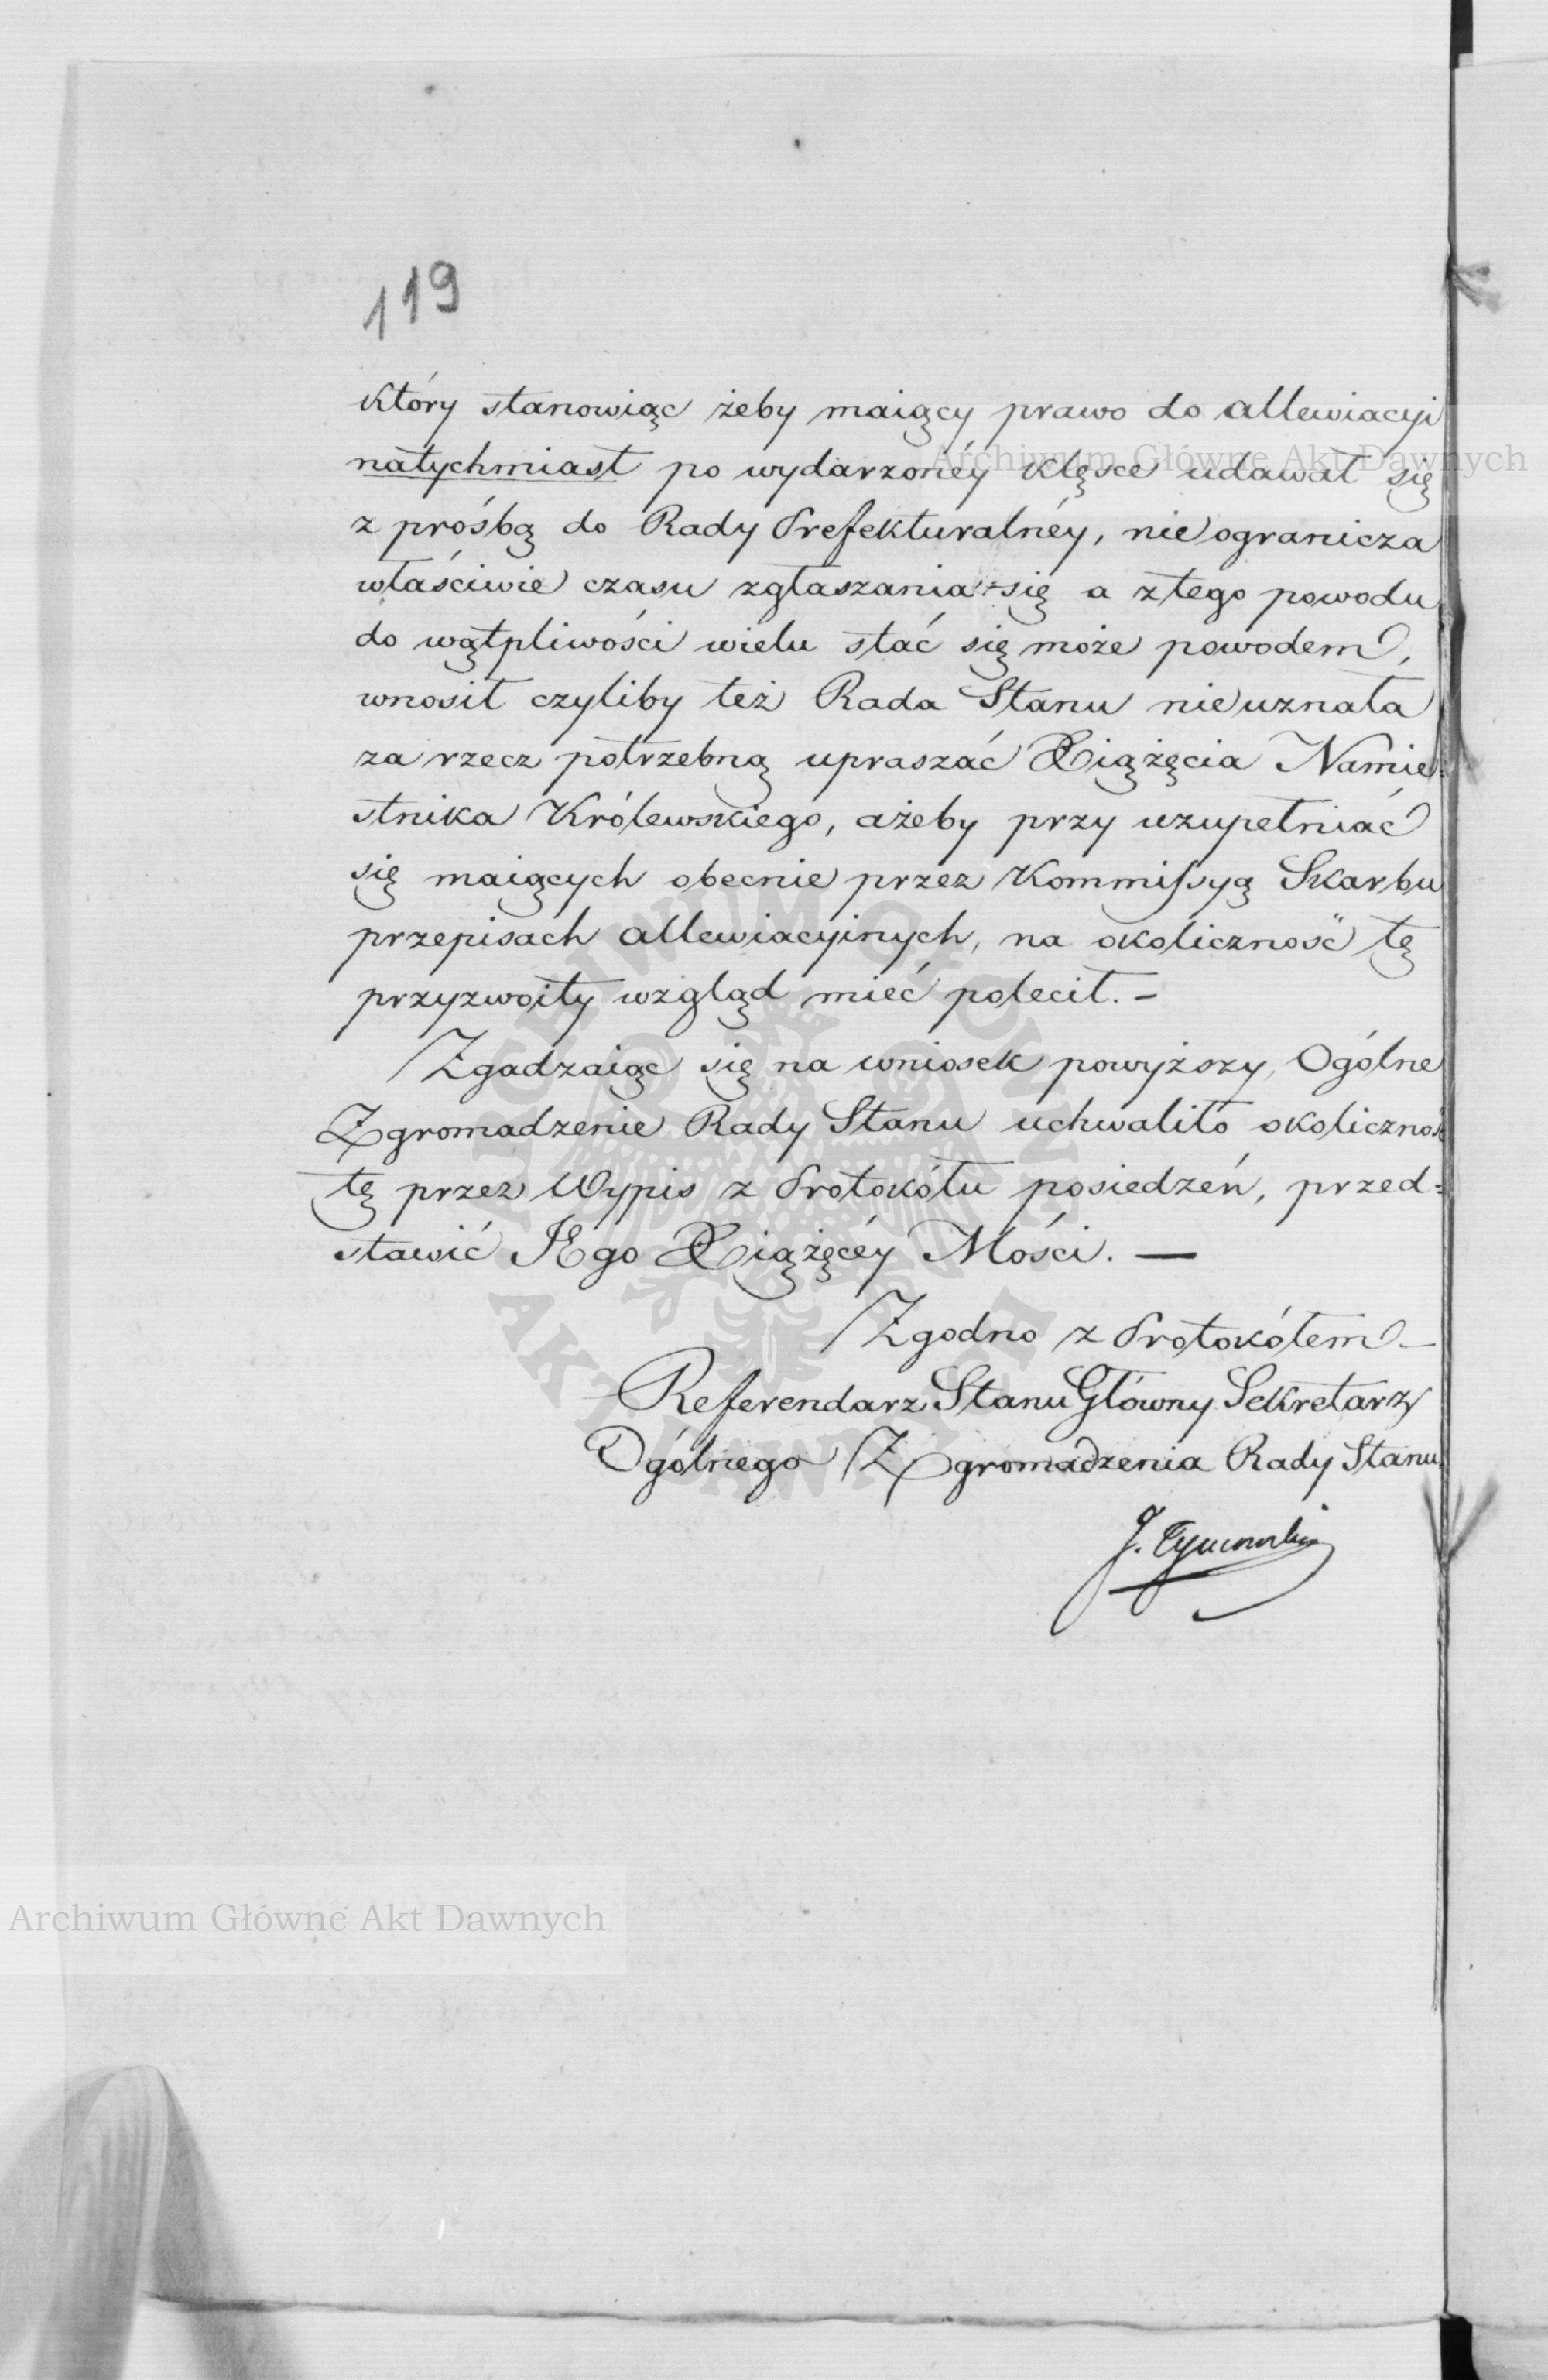 119
który stanowiąc żeby maiący prawo do allewiacyi
Archiwum Główne Akt Dawnych
natychmiast po wydarzonéy klęsce udawał się
z prośbą do Rady Prefekturalnéy, nie ogranicza
właściwie czasu zgłaszania się a z tego powodu
do wątpliwości wielu stać się może powodem,
wnosił czyliby też Rada Stanu nie uznała
za rzecz potrzebną upraszać Xiążęcia Namie=
stnika Królewskiego, ażeby przy uzupełniać
się maiących obecnie przez Kommissyą Skarbu
przepisach allewiacyinych, na okoliczność tę
przyzwoity wzgląd mieć polecił. –
Zgadzaiąc się na wniosek powyższy, Ogólne
Zgromadzenie Rady Stanu uchwaliło okoliczność
tę przez Wypis z Protokółu posiedzeń, przed=
stawić JEgo Xiążęcéy Mości. —
Zgodno z Protokółem –
Referendarz Stanu Główny Sekretarz
Ogólnego Zgromadzenia Rady Stanu
J. Tymowski
ARCHIWUM GŁÓWNE
AKT DAWNYCH
Archiwum Główne Akt Dawnych